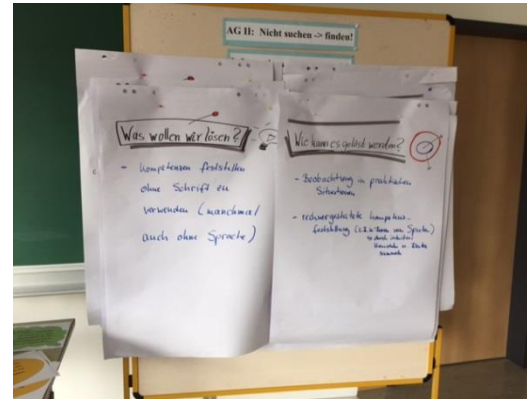 AG II: Nicht suchen -> finden!
Was wollen wir lösen?
- Kompetenzen feststellen
ohne Schrift zu
verwenden (manchmal
auch ohne Sprache)
Wie kann es gelöst werden?
- Beobachtung in praktischen
Situationen
- rechnergestützte Kompetenz-
feststellung (z.B. in Form von Spielen)